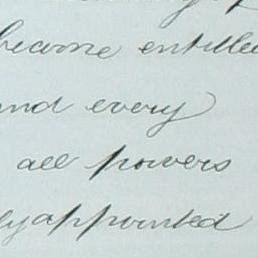 become entitled
and every
all powers
ly appointed